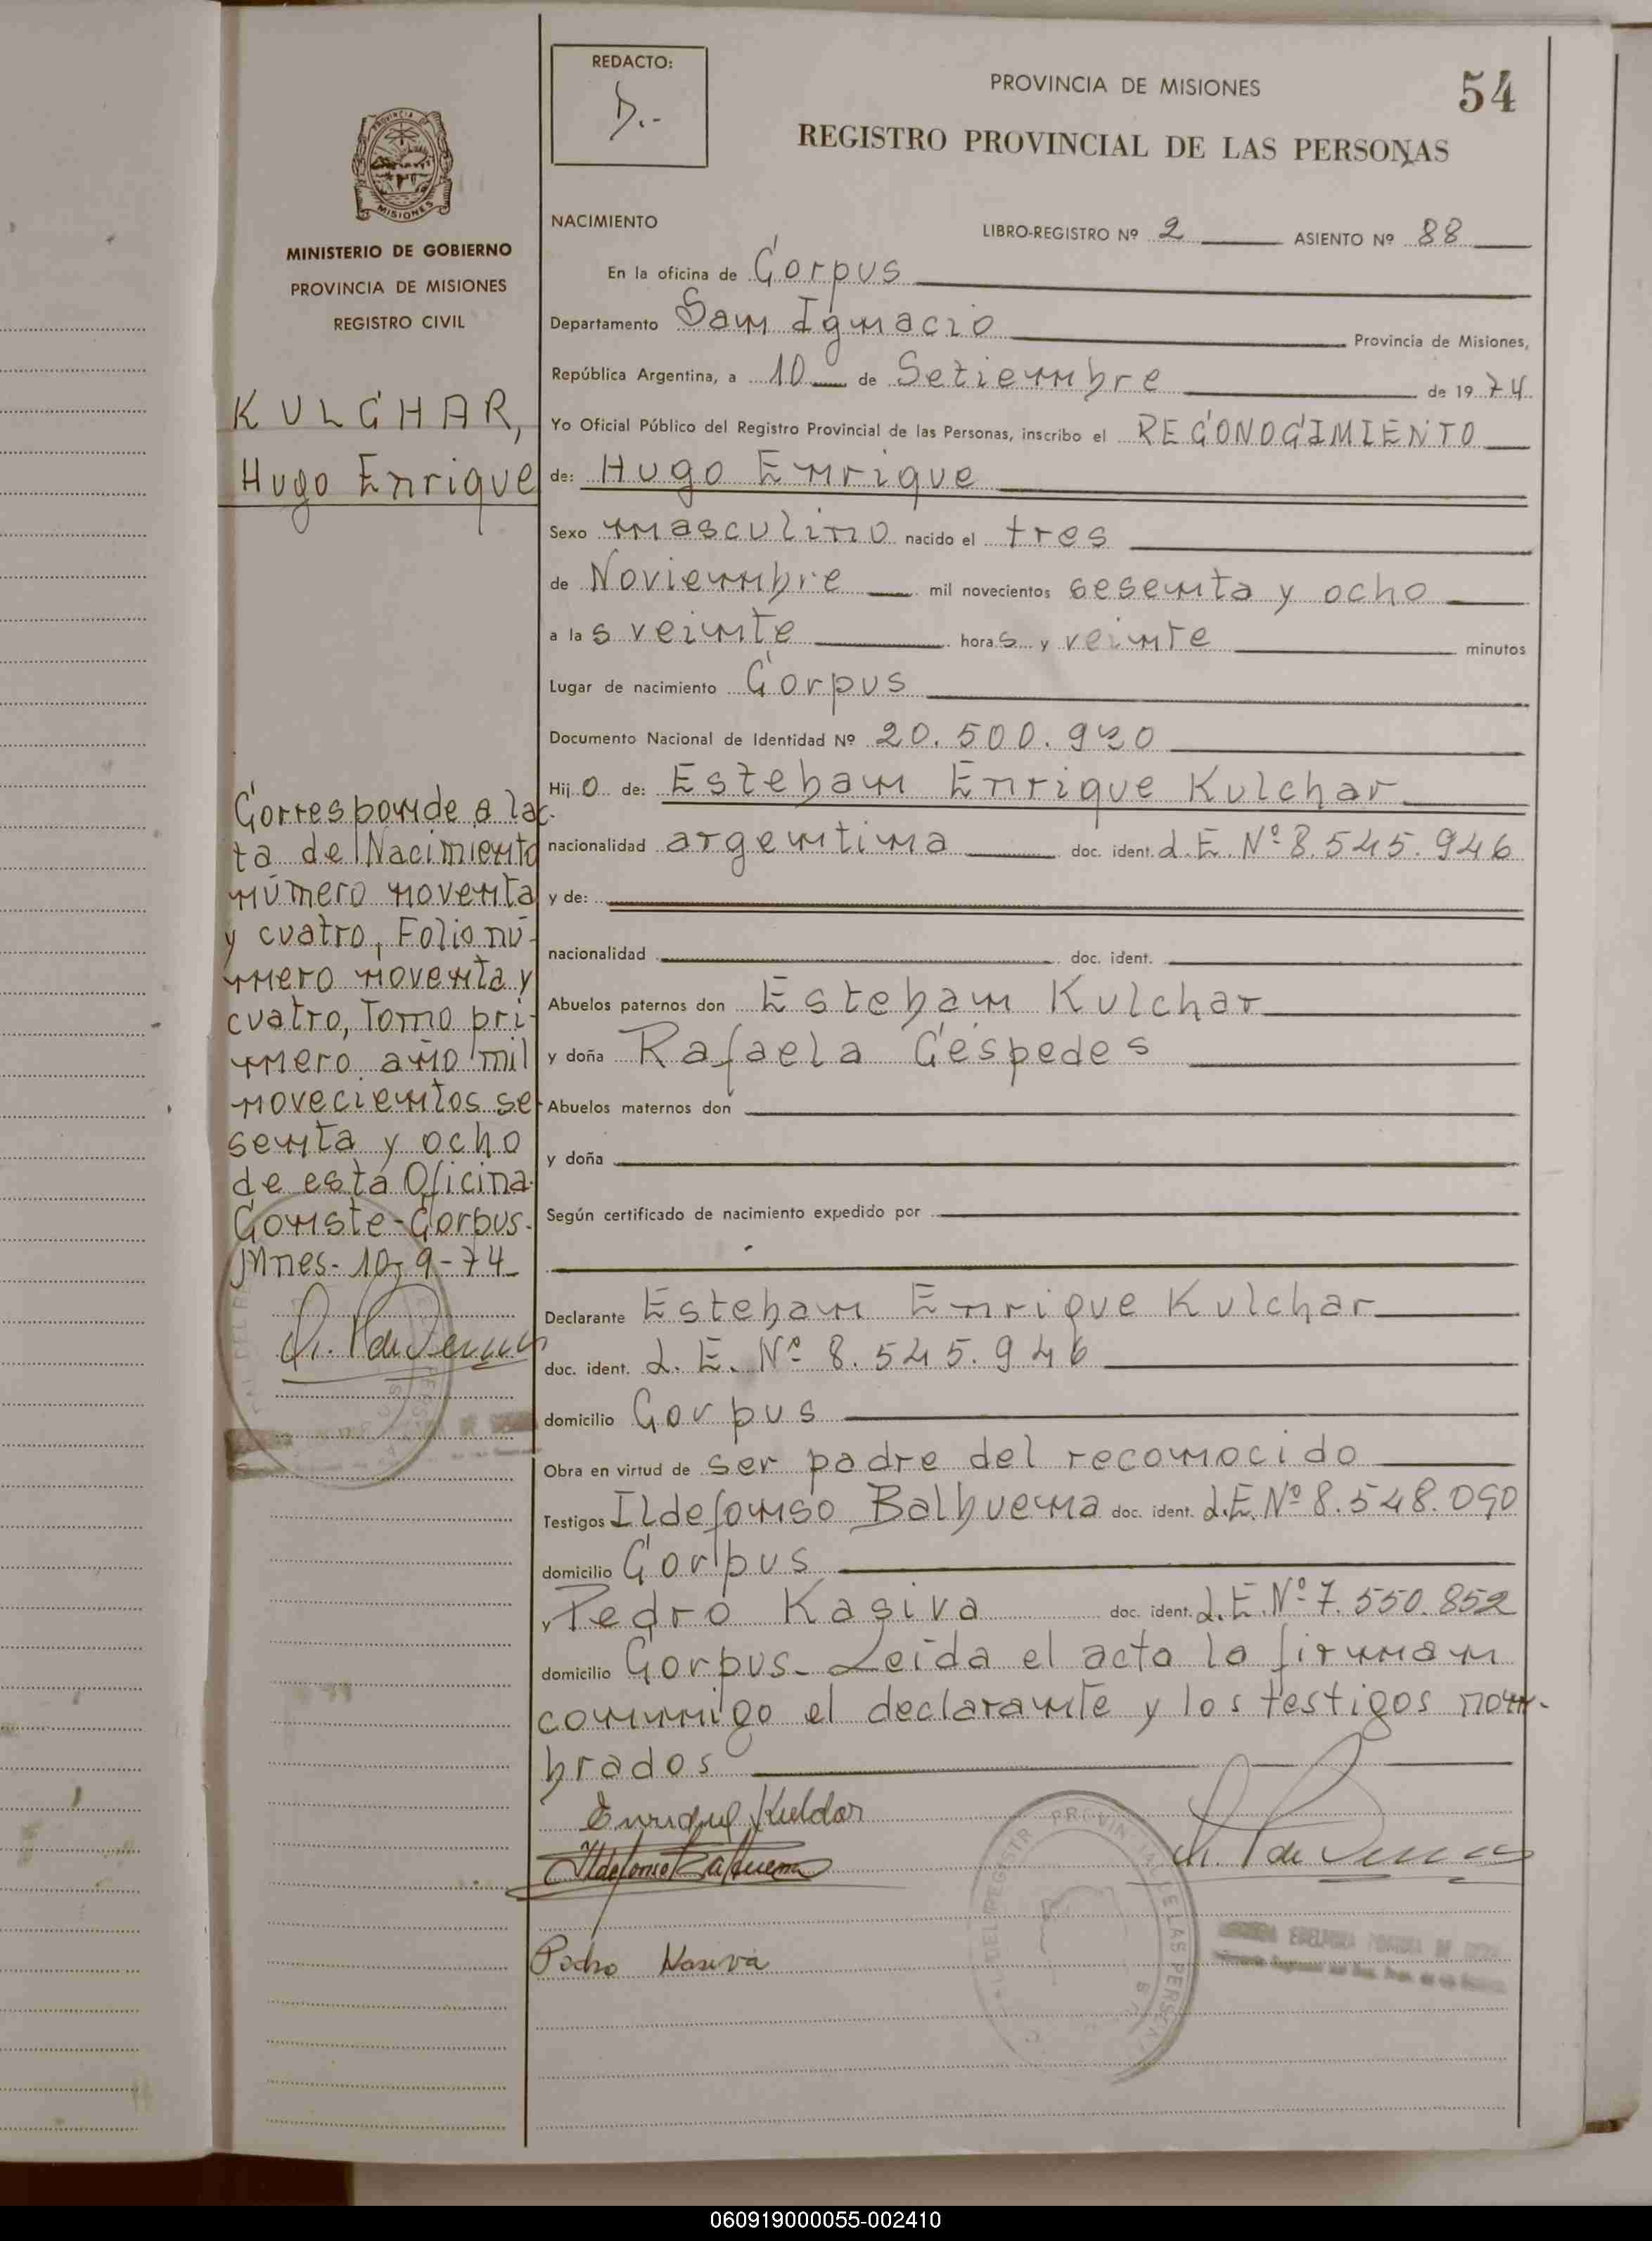 REDACTO:
D.-
PROVINCIA DE MISIONES
54
REGISTRO PROVINCIAL DE LAS PERSONAS
PROVINCIA
MISIONES
MINISTERIO DE GOBIERNO
PROVINCIA DE MISIONES
REGISTRO CIVIL
KULCHAR,
Hugo Enrique
Corresponde a lac-
ta de Nacimiento
número noventa
y cuatro, Folio nú-
mero noventa y
cuatro, Tomo pri-
mero año mil
novecientos se-
senta y ocho
de esta Oficina.
Conste-Corpus.
Mnes- 10-9-74
NACIMIENTO
LIBRO-REGISTRO Nº 2 ASIENTO Nº 88
En la oficina de Corpus
Departamento San Ignacio Provincia de Misiones,
República Argentina, a 10 de Setiembre de 1974
Yo Oficial Público del Registro Provincial de las Personas, inscribo el RECONOCIMIENTO
de: Hugo Enrique
Sexo masculino nacido el tres
de Noviembre mil novecientos sesenta y ocho
a las veinte horas y veinte minutos
Lugar de nacimiento Corpus
Documento Nacional de Identidad Nº 20.500.920
Hijo de: Esteban Enrique Kulchar
nacionalidad argentina doc. ident. L.E. Nº 8.545.946
y de:
nacionalidad doc. ident.
Abuelos paternos don Esteban Kulchar
y doña Rafaela Céspedes
Abuelos maternos don
y doña
Según certificado de nacimiento expedido por
Declarante Esteban Enrique Kulchar
doc. ident. L.E. Nº 8.545.946
domicilio Corpus
Obra en virtud de ser padre del reconocido
Testigos Ildefonso Balbuena doc. ident. L.E. Nº 8.548.090
domicilio Corpus
y Pedro Kasiva doc. ident. L.E. Nº 7.550.852
domicilio Corpus- Leída el acta la firman
conmigo el declarante y los testigos nom-
brados
Enrique Kulchar
Ildefonso Balbuena
Pedro Kasiva
060919000055-002410